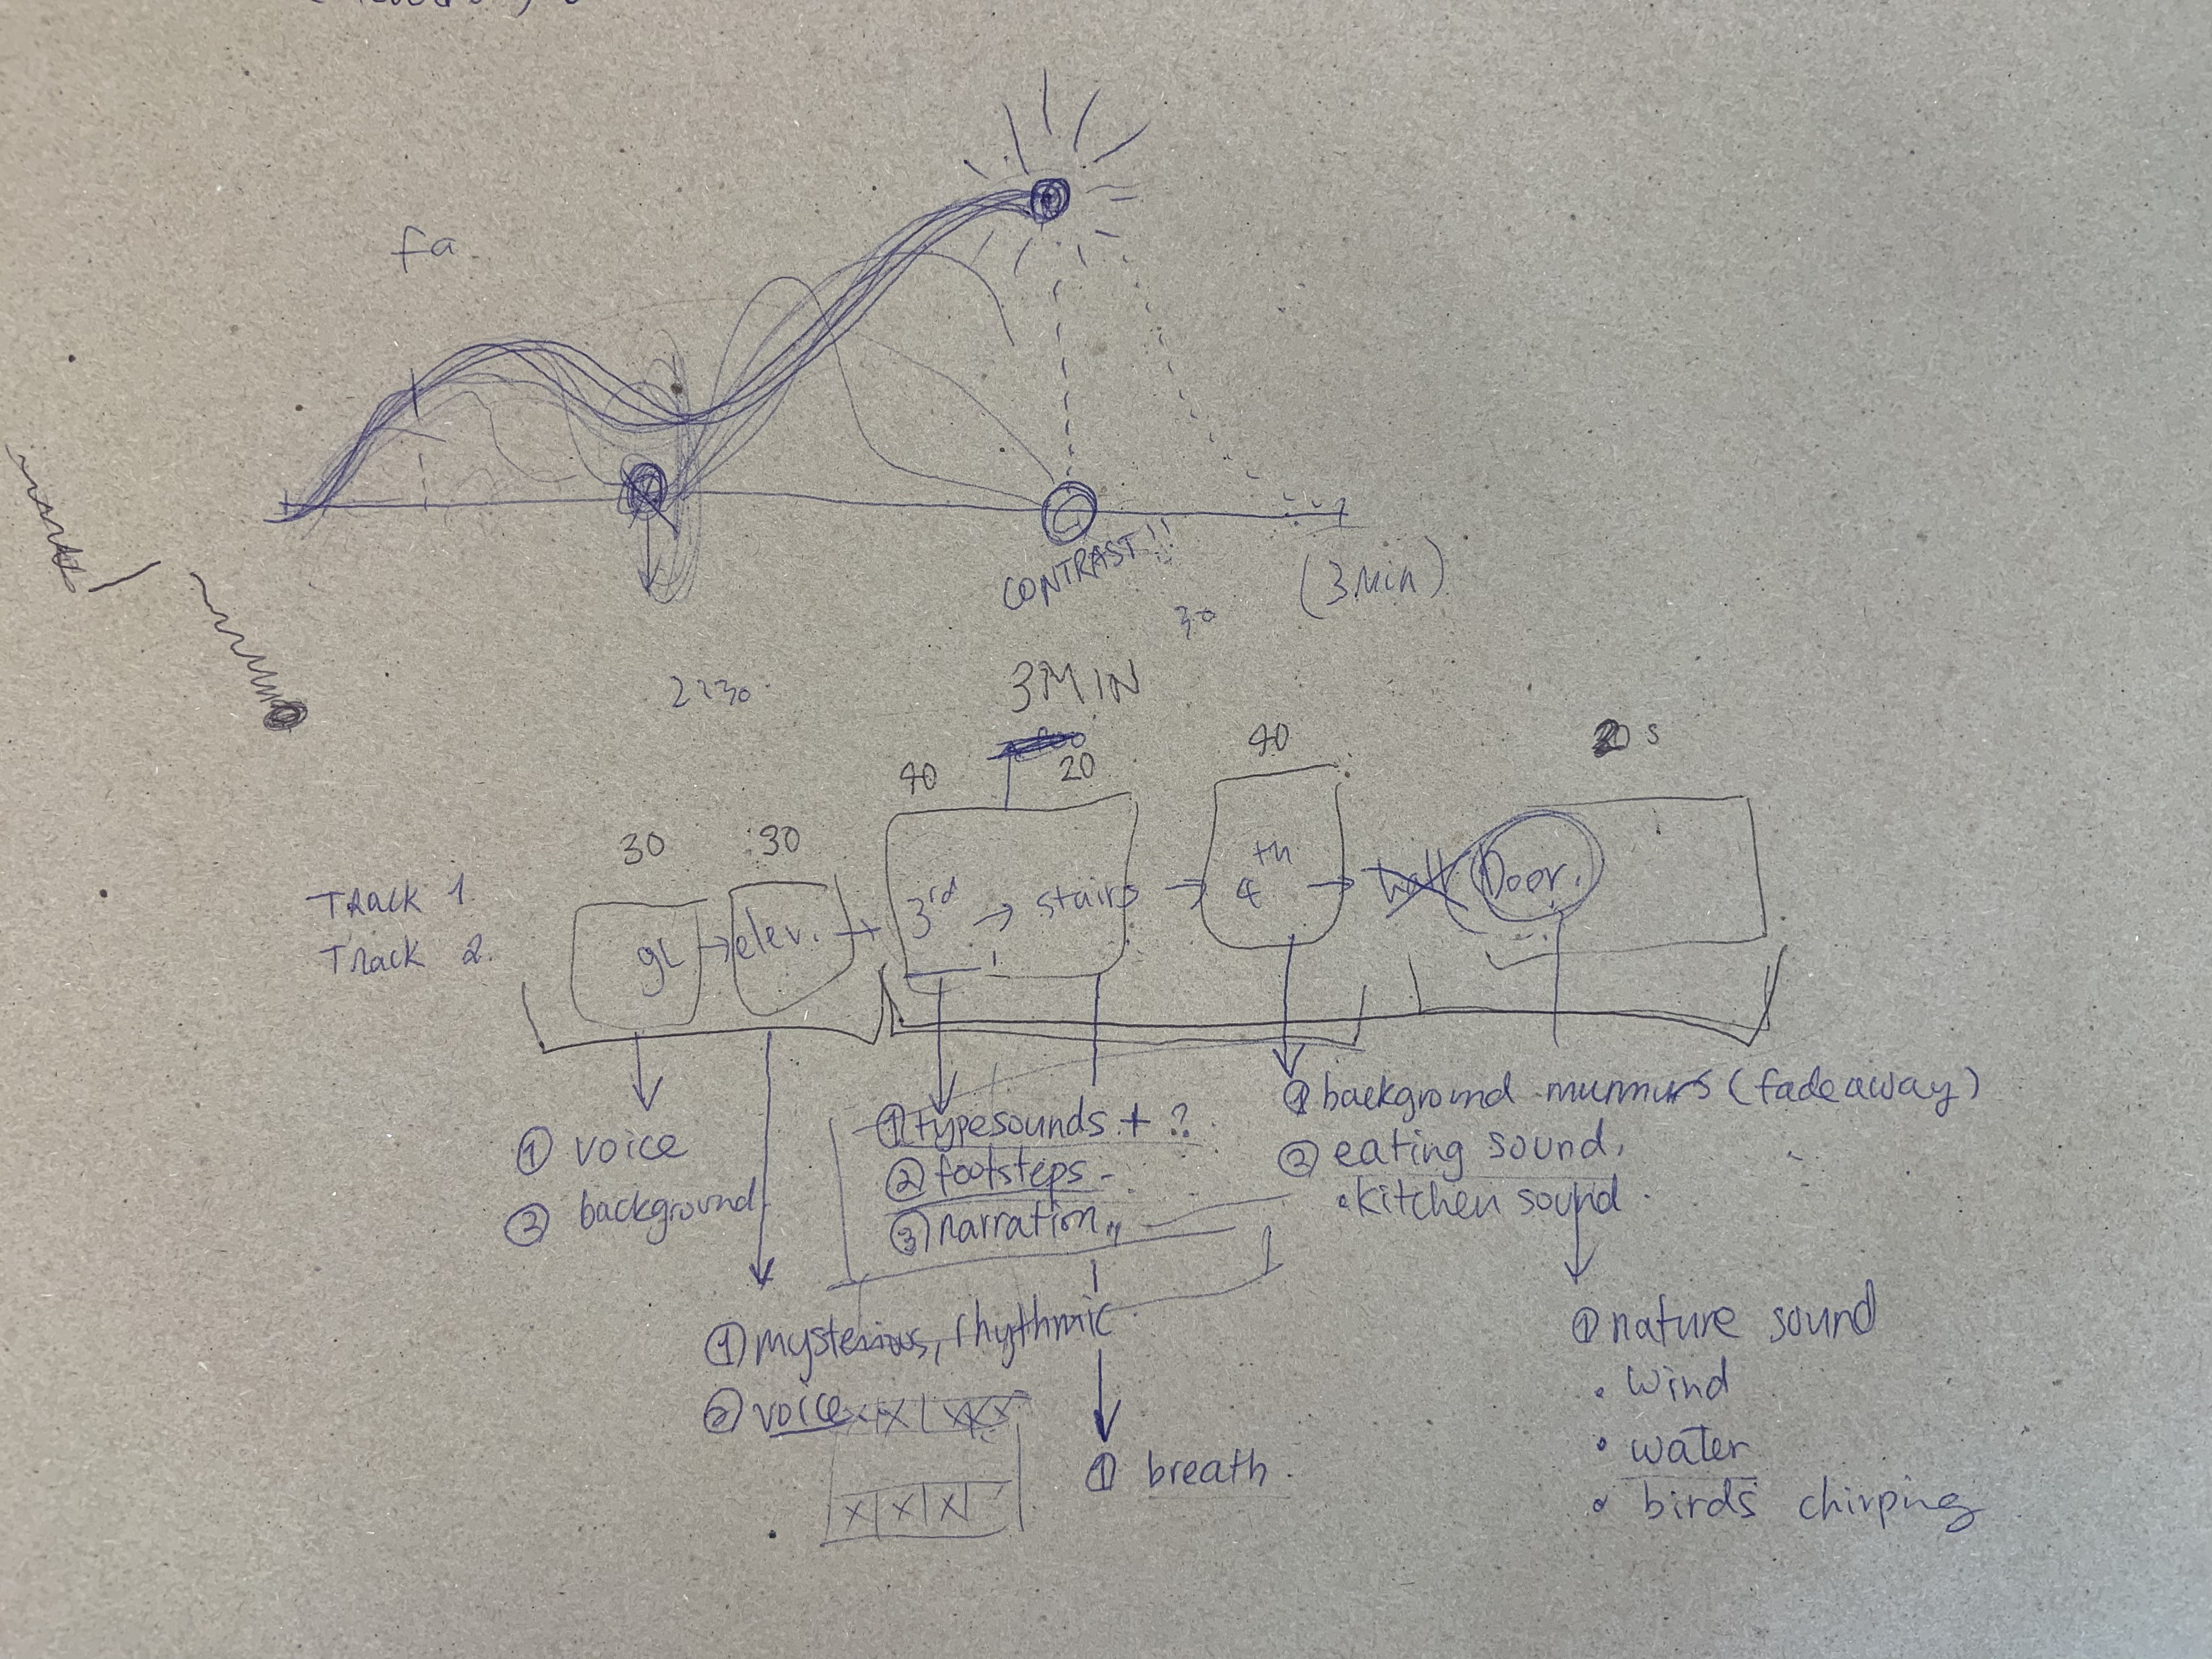 fa
CONTRAST!!
(3 Min)
30
2:30
3 MIN
40
20
40
20 s
30
30
Track 1.
Track 2.
gL → elev. → 3rd → stairs → 4th → hall Door.
① voice
② background
① typesounds + ?
② footsteps
③ narration
① background murmurs (fadeaway)
② eating sound.
• kitchen sound.
① mysterious, rhythmic
② voice
① breath.
① nature sound
• wind
• water
• birds chirping